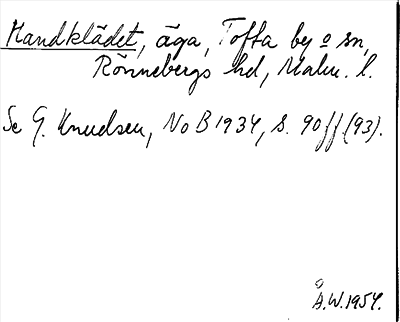 Handklädet, äga, Tofta by o sn,
Rönnebergs hd, Malm. l.
Se G. Knudsen, NoB 1934, s. 90ff (93).
Å.W. 1954.